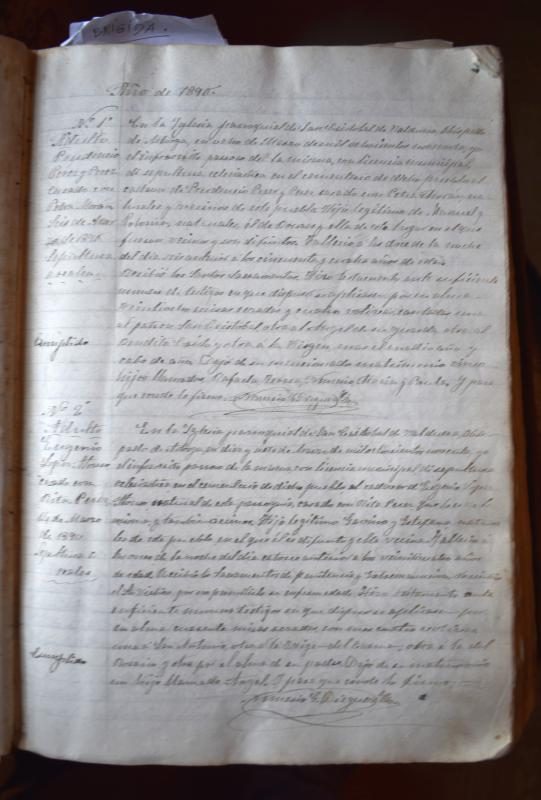 BRIGIDA.
Año de 1890.
Nº 1º
Adulto
Prudencio
Perez y Perez
casado con
Petra Moran
de 1890.
Sepultura
Cumplido
En la Iglesia parroquial de San Cristobal de Valduerna, Obispado
de Astorga, en ocho de Marzo de mil ochocientos noventa, yo
el infrascrito parroco de la misma, con licencia municipal,
di sepultura eclesiastica en el cementerio de dicho pueblo al
cadaver de Prudencio Perez y Perez casado con Petra Moran, na-
turales y vecinos de este pueblo. Hijo legitimo de Manuel y
naturales, él de y ella de este lugar en el que
fueron vecinos y son difuntos. Fallecio a las doce de la noche
del dia a los cincuenta y cuatro años de edad.
Recibió los Santos Sacramentos. Hizo testamento ante suficiente
numero de testigos en que dispuso se aplicasen por su alma
veintiocho misas rezadas y cuatro votivas cantadas una
al patron San Cristobal, otra al Angel de su guarda, otra al
bendito y otra a la Virgen, mas el medio año y
cabo de año. Dejó de su mencionado matrimonio cinco
hijos llamados, Rafaela, Teresa, Maria y Para
que conste lo firmo.
Nº 2º
Adulto
Eugenio
Lopez Alonso
casado con
Rita Perez
de Marzo
de 1890.
Cumplido
En la Iglesia parroquial de San Cristobal de Valduerna, Obis-
pado de Astorga, en diez y seis de Marzo de mil ochocientos noventa, yo
el infrascrito parroco de la misma con licencia municipal di sepultura
eclesiastica en el cementerio de dicho pueblo al cadaver de Eugenio Lopez
Alonso natural de esta parroquia, casado con Rita Perez que lo es de la
misma y tambien vecinos. Hijo legitimo y Estefana natura-
les de este pueblo en el que él es difunto y ella vecina. Fallecio a
las once de la noche del dia catorce anterior a los años
de edad. Recibió los Sacramentos de penitencia y Extremauncion
el Viatico por no permitirlo su enfermedad. Hizo testamento ante
suficiente numero testigos en que dispuso se aplicasen por
su alma cuarenta misas rezadas, con mas cuatro votivas
una a San Antonio, otra a la Virgen del Carmen, otra a la del
Rosario y otra por el alma de su padre. Dejó de su matrimonio
un hijo llamado Angel. Y para que conste lo firmo.